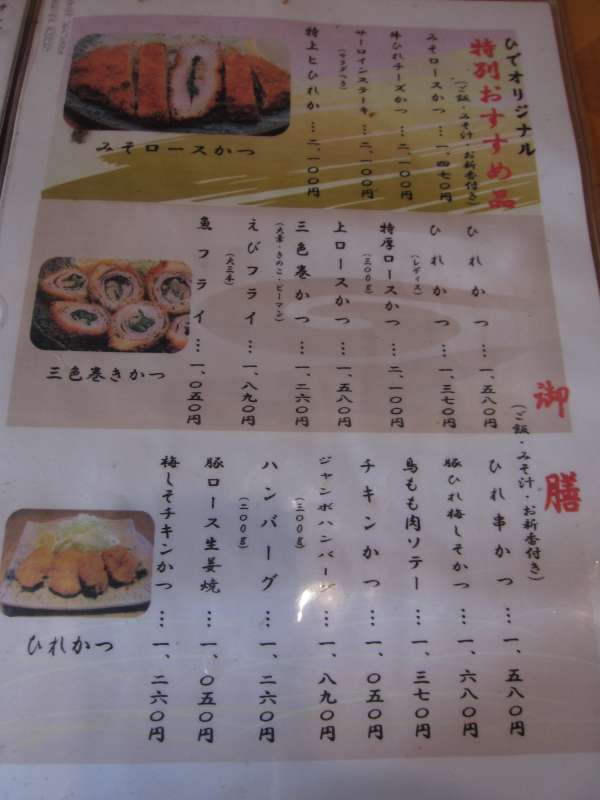 ひでオリジナル
特別おすすめ品
(ご飯・みそ汁・お新香付き)
みそロースかつ…一、四七〇円
牛ひれチーズかつ…二、一〇〇円
サーロインステーキ…二、一〇〇円
(サラダつき)
特上ヒひれか…二、一〇〇円
みそロースかつ
御膳
(ご飯・みそ汁・お新香付き)
ひれかつ…一、五八〇円
ひれかつ…一、三七〇円
(レディス)
特厚ロースかつ…二、一〇〇円
(三〇〇g)
上ロースかつ…一、五八〇円
三色巻かつ…一、二六〇円
(大葉・きのこ・ピーマン)
えびフライ…一、八九〇円
(大三本)
魚フライ…一、〇五〇円
三色巻きかつ
ひれ串かつ…一、五八〇円
豚ひれ梅しそかつ…一、六八〇円
鳥もも肉ソテー…一、三七〇円
チキンかつ…一、〇五〇円
ジャンボハンバーグ…一、八九〇円
(三〇〇g)
ハンバーグ…一、二六〇円
(二〇〇g)
豚ロース生姜焼…一、〇五〇円
梅しそチキンかつ…一、二六〇円
ひれかつ